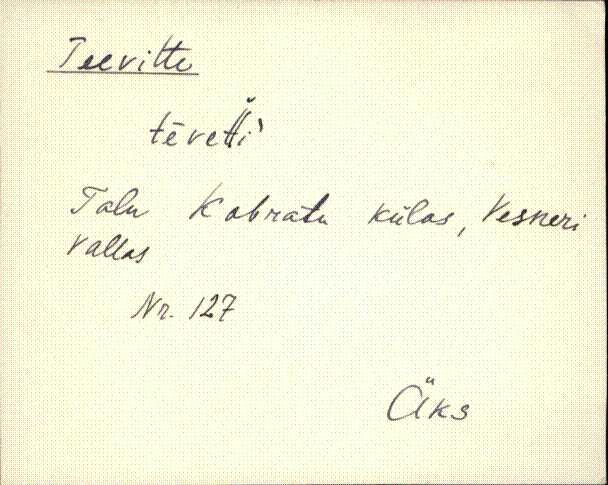 Teevittu
tēvetti
Talu Kobratu külas, Vesneri
vallas
Nr. 127
Äks